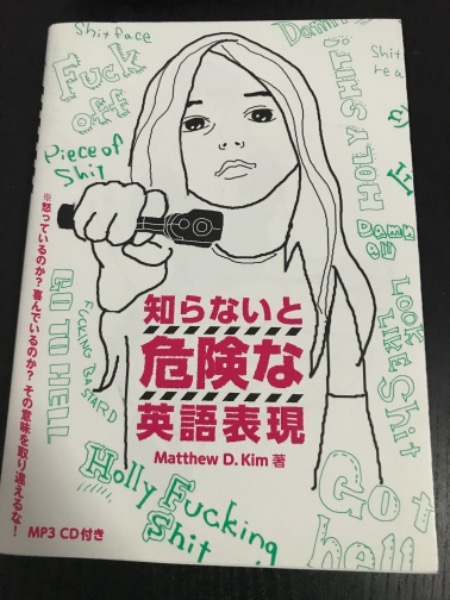 Shit face
Fuck
off
Piece of
Shit
HOLY SHIT!
Damn
all
LOOK
LIKE Shit
GO TO HELL
FUCKING BASTARD
※怒っているのか?喜んでいるのか? その意味を取り違えるな!
知らないと
危険な
英語表現
Matthew D. Kim 著
Holly Fucking
Shit
Go t
hell
MP3 CD付き